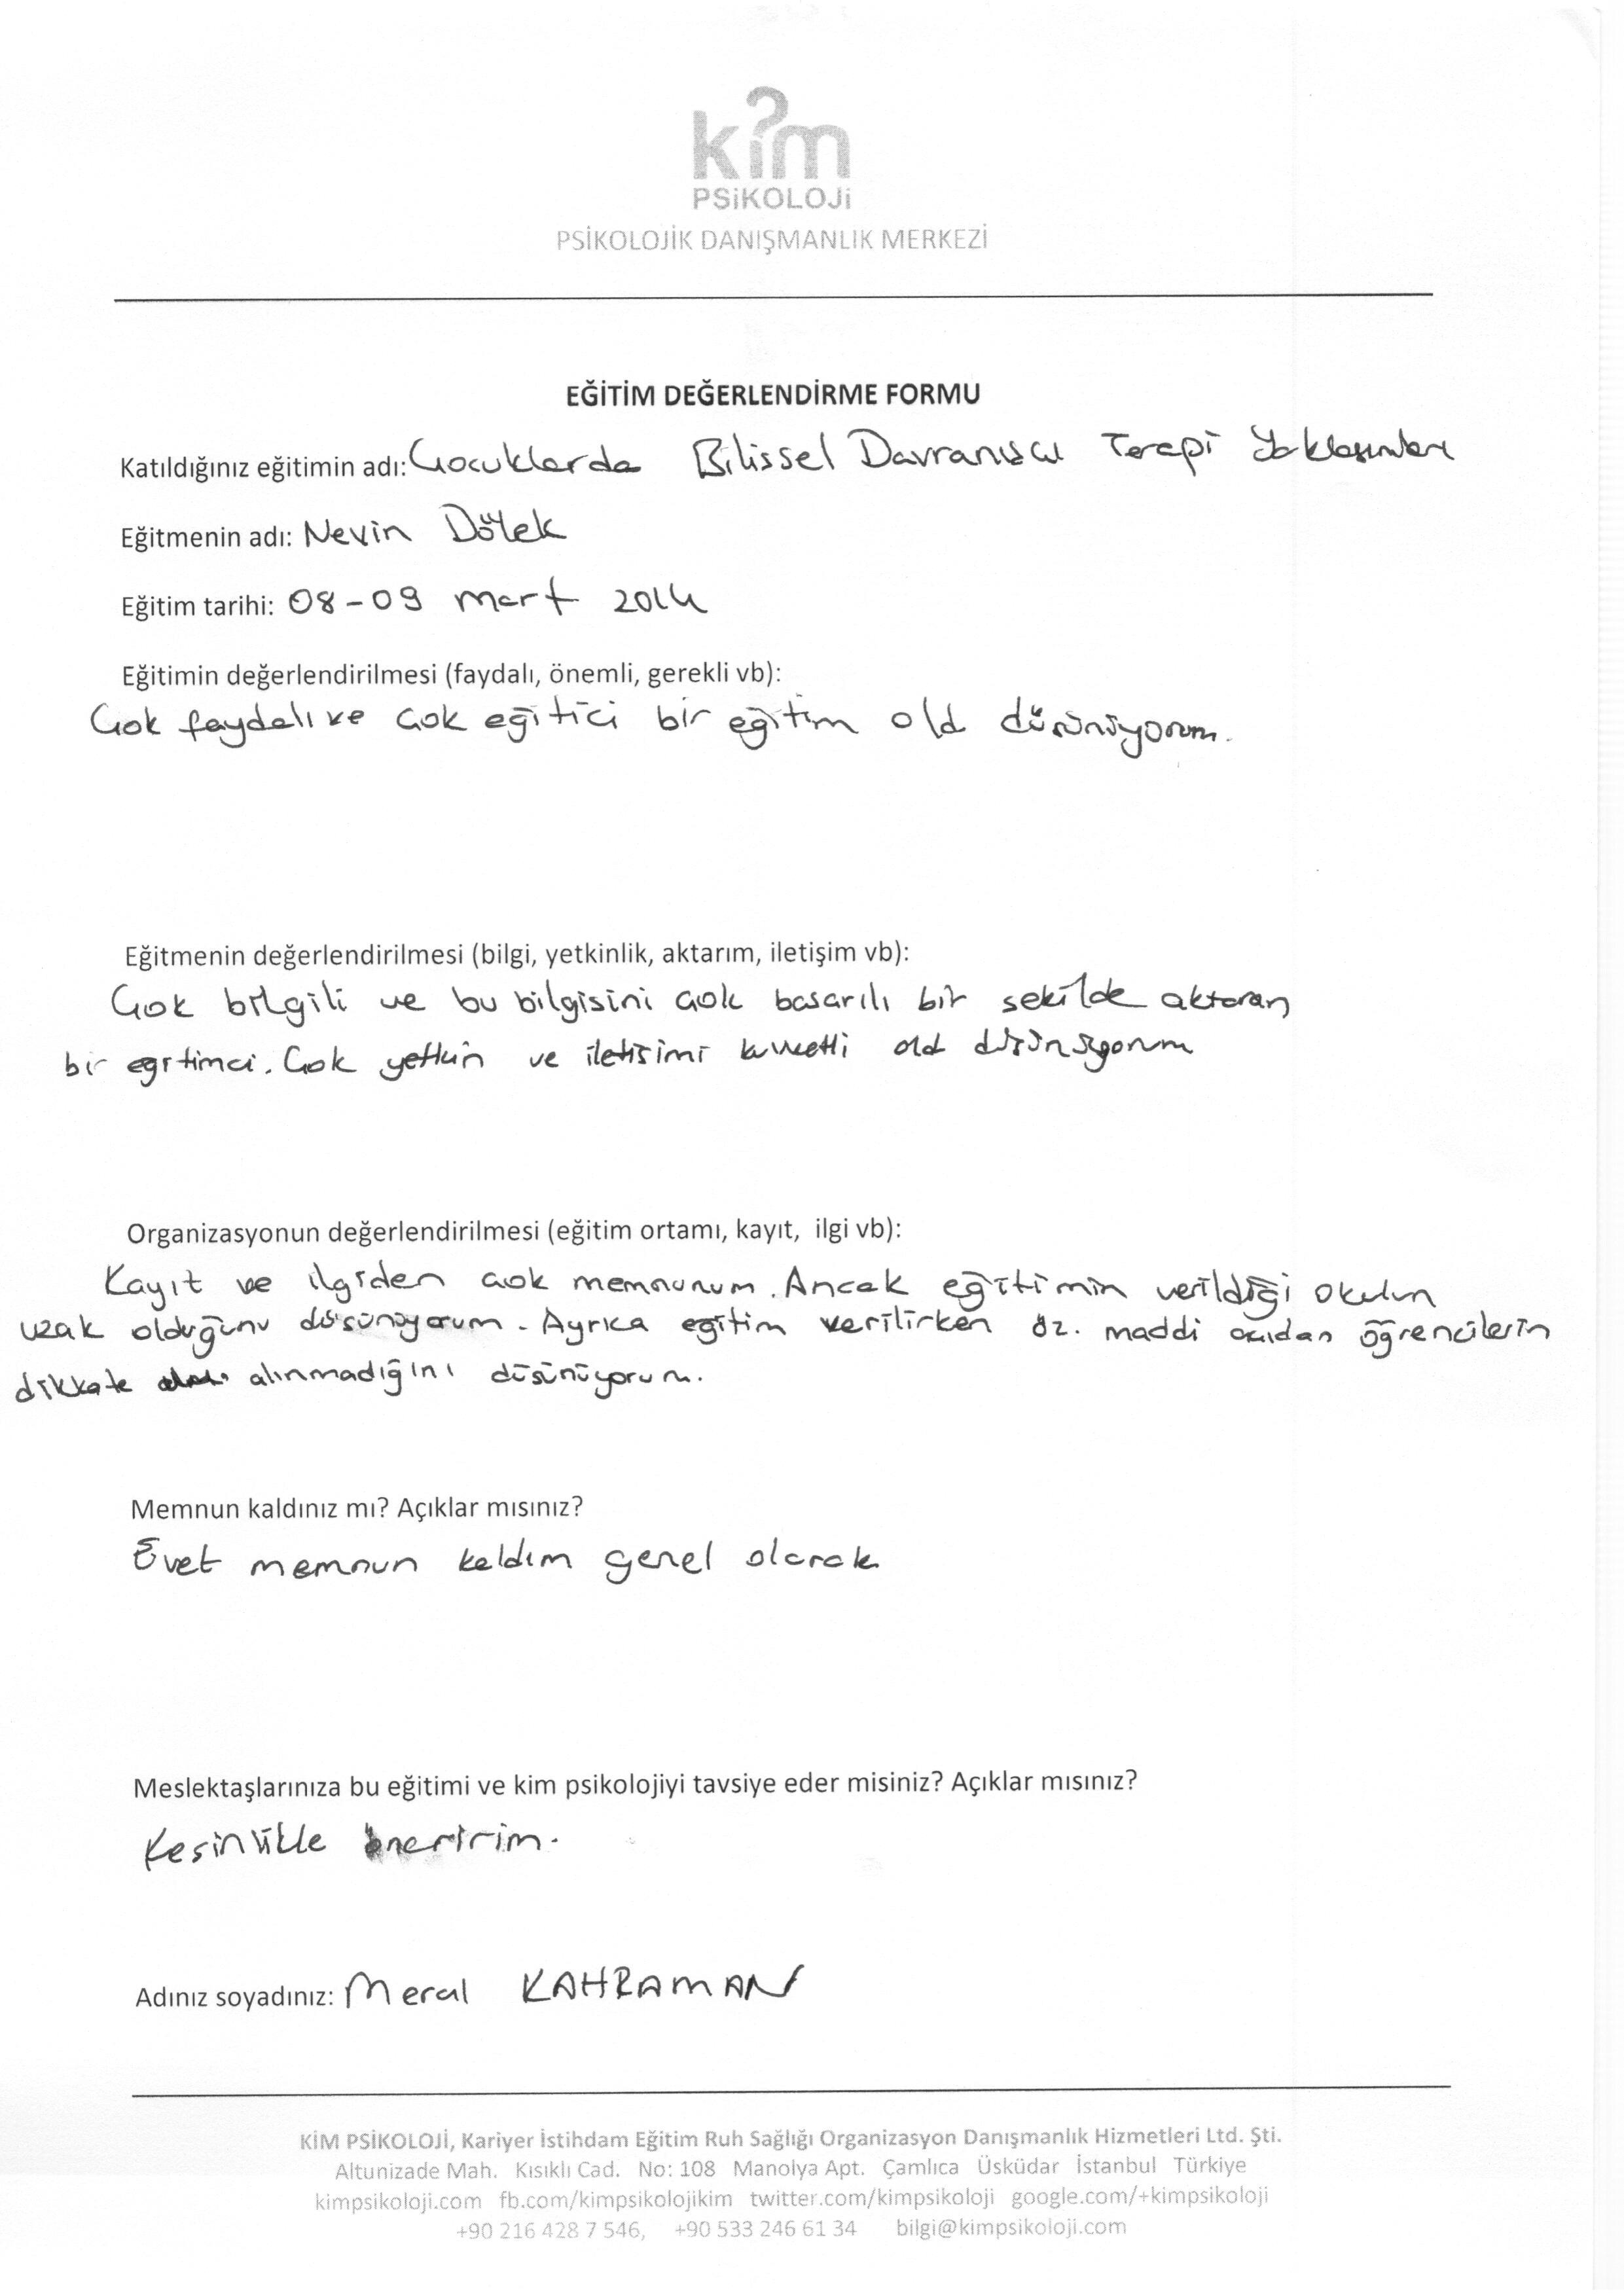 kim
PSiKOLOJi
PSİKOLOJİK DANIŞMANLIK MERKEZİ
EĞİTİM DEĞERLENDİRME FORMU
Katıldığınız eğitimin adı: Çocuklarda Bilissel Davranıscı Terapi Yaklasımları
Eğitmenin adı: Nevin Dölek
Eğitim tarihi: 08-09 mart 2014
Eğitimin değerlendirilmesi (faydalı, önemli, gerekli vb):
Çok faydalı ve çok eğitici bir eğitim old düsünüyorum.
Eğitmenin değerlendirilmesi (bilgi, yetkinlik, aktarım, iletişim vb):
Çok bilgili ve bu bilgisini çok basarılı bir sekilde aktaran
bir egitimci. Çok yetkin ve iletisimi kuvvetli old düsünüyorum
Organizasyonun değerlendirilmesi (eğitim ortamı, kayıt, ilgi vb):
Kayıt ve ilgiden çok memnunum. Ancak eğitimin verildiği okulun
uzak olduğunu düsünüyorum. Ayrıca egitim verilirken öz. maddi acıdan öğrencilerin
dikkate alınmadığını düsünüyorum.
Memnun kaldınız mı? Açıklar mısınız?
Evet memnun kaldım genel olarak
Meslektaşlarınıza bu eğitimi ve kim psikolojiyi tavsiye eder misiniz? Açıklar mısınız?
Kesinlikle öneririm.
Adınız soyadınız: Meral KAHRAMAN
KİM PSİKOLOJİ, Kariyer İstihdam Eğitim Ruh Sağlığı Organizasyon Danışmanlık Hizmetleri Ltd. Şti.
Altunizade Mah. Kısıklı Cad. No: 108 Manolya Apt. Çamlıca Üsküdar İstanbul Türkiye
kimpsikoloji.com fb.com/kimpsikolojikim twitter.com/kimpsikoloji google.com/+kimpsikoloji
+90 216 428 7 546, +90 533 246 61 34 bilgi@kimpsikoloji.com